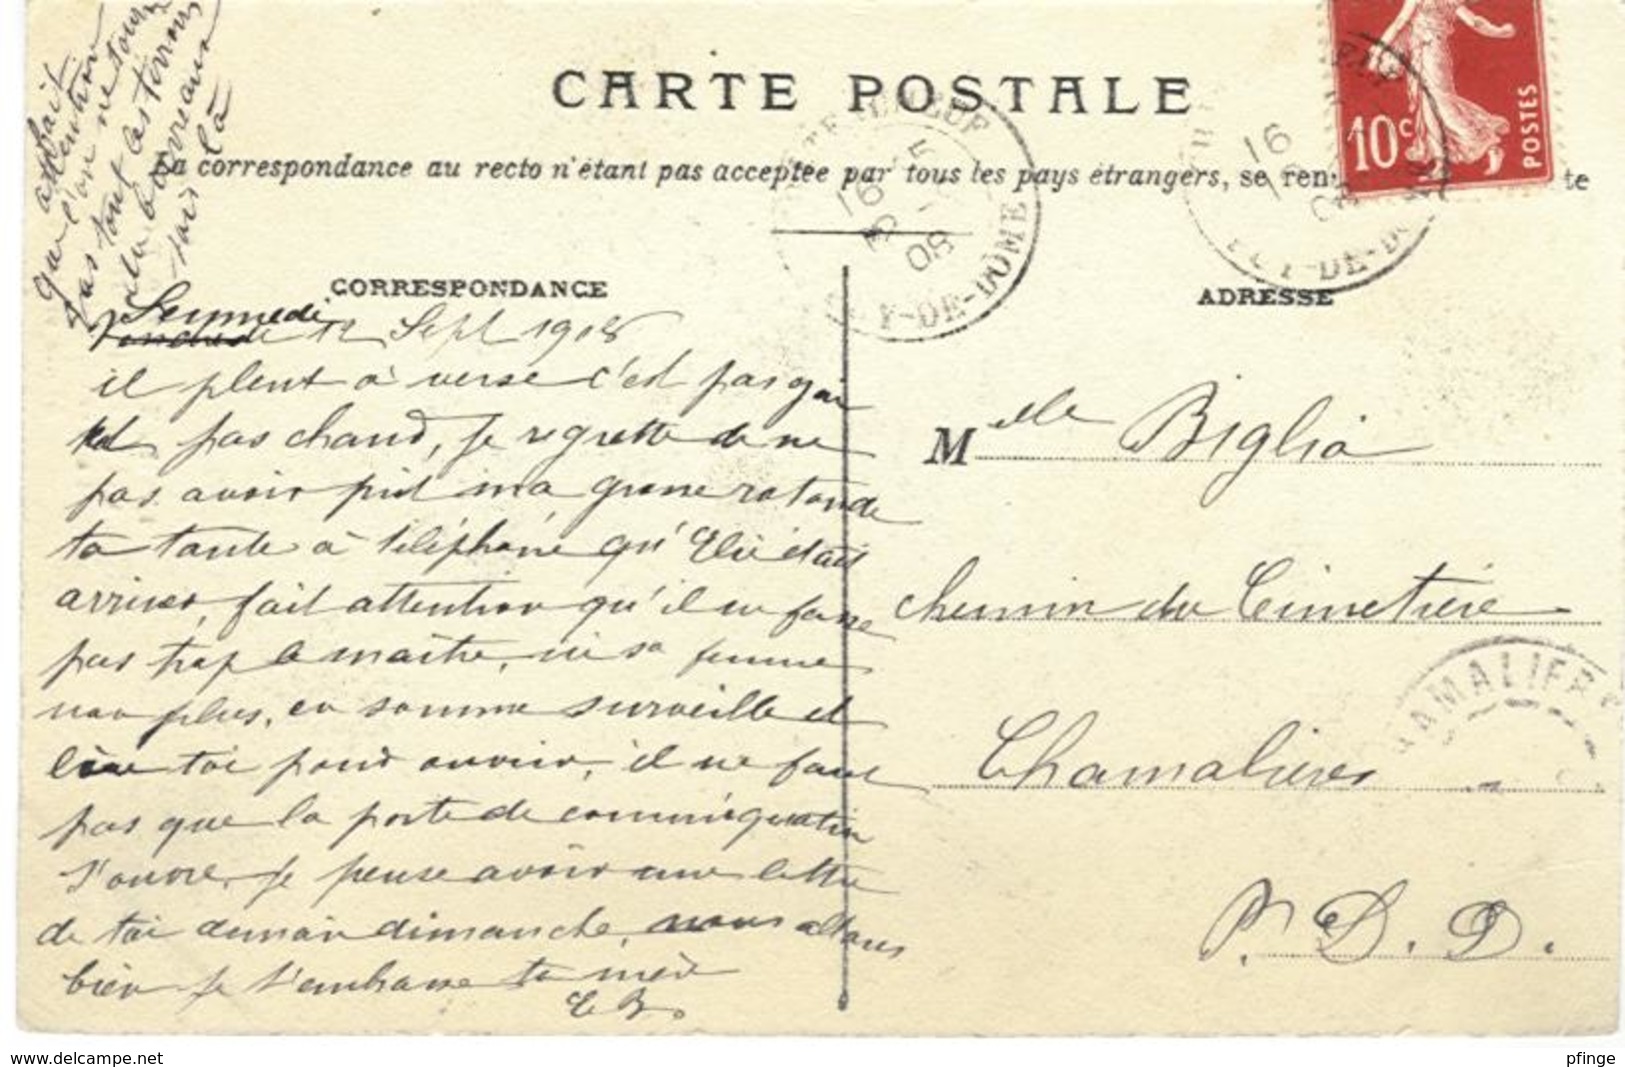 fait attention
que l'on ne tourne
pas tout les terrines
du bourreaux
sois là
CARTE POSTALE
La correspondance au recto n'étant pas acceptée par tous les pays étrangers, se ren
te
10c
POSTES
16
5
08
PUY-DE-DOME
16
Y-DE-D
CORRESPONDANCE
ADRESSE
Semmedi
12 Sept 1908
il pleut a verse c'est pas gai
pas chaud, je regrette de ne
pas avoir prit ma grosse rotonde
ta tante a téléphoné qu'Elie était
arriver, fait attention qu'il ne fasse
pas trop le maitre, ni sa femme
non plus, en somme surveille et
toi pour ouvrir, il ne faut
pas que la porte de comminiquation
s'ouvre, je pense avoir une lettre
de toi demain dimanche, nous allons
bien je t'embrasse ta mère
E B.
Melle Biglia
chemin du Cimetière
AMALIER
Chamalières
P. D. D.
www.delcampe.net
pfinge